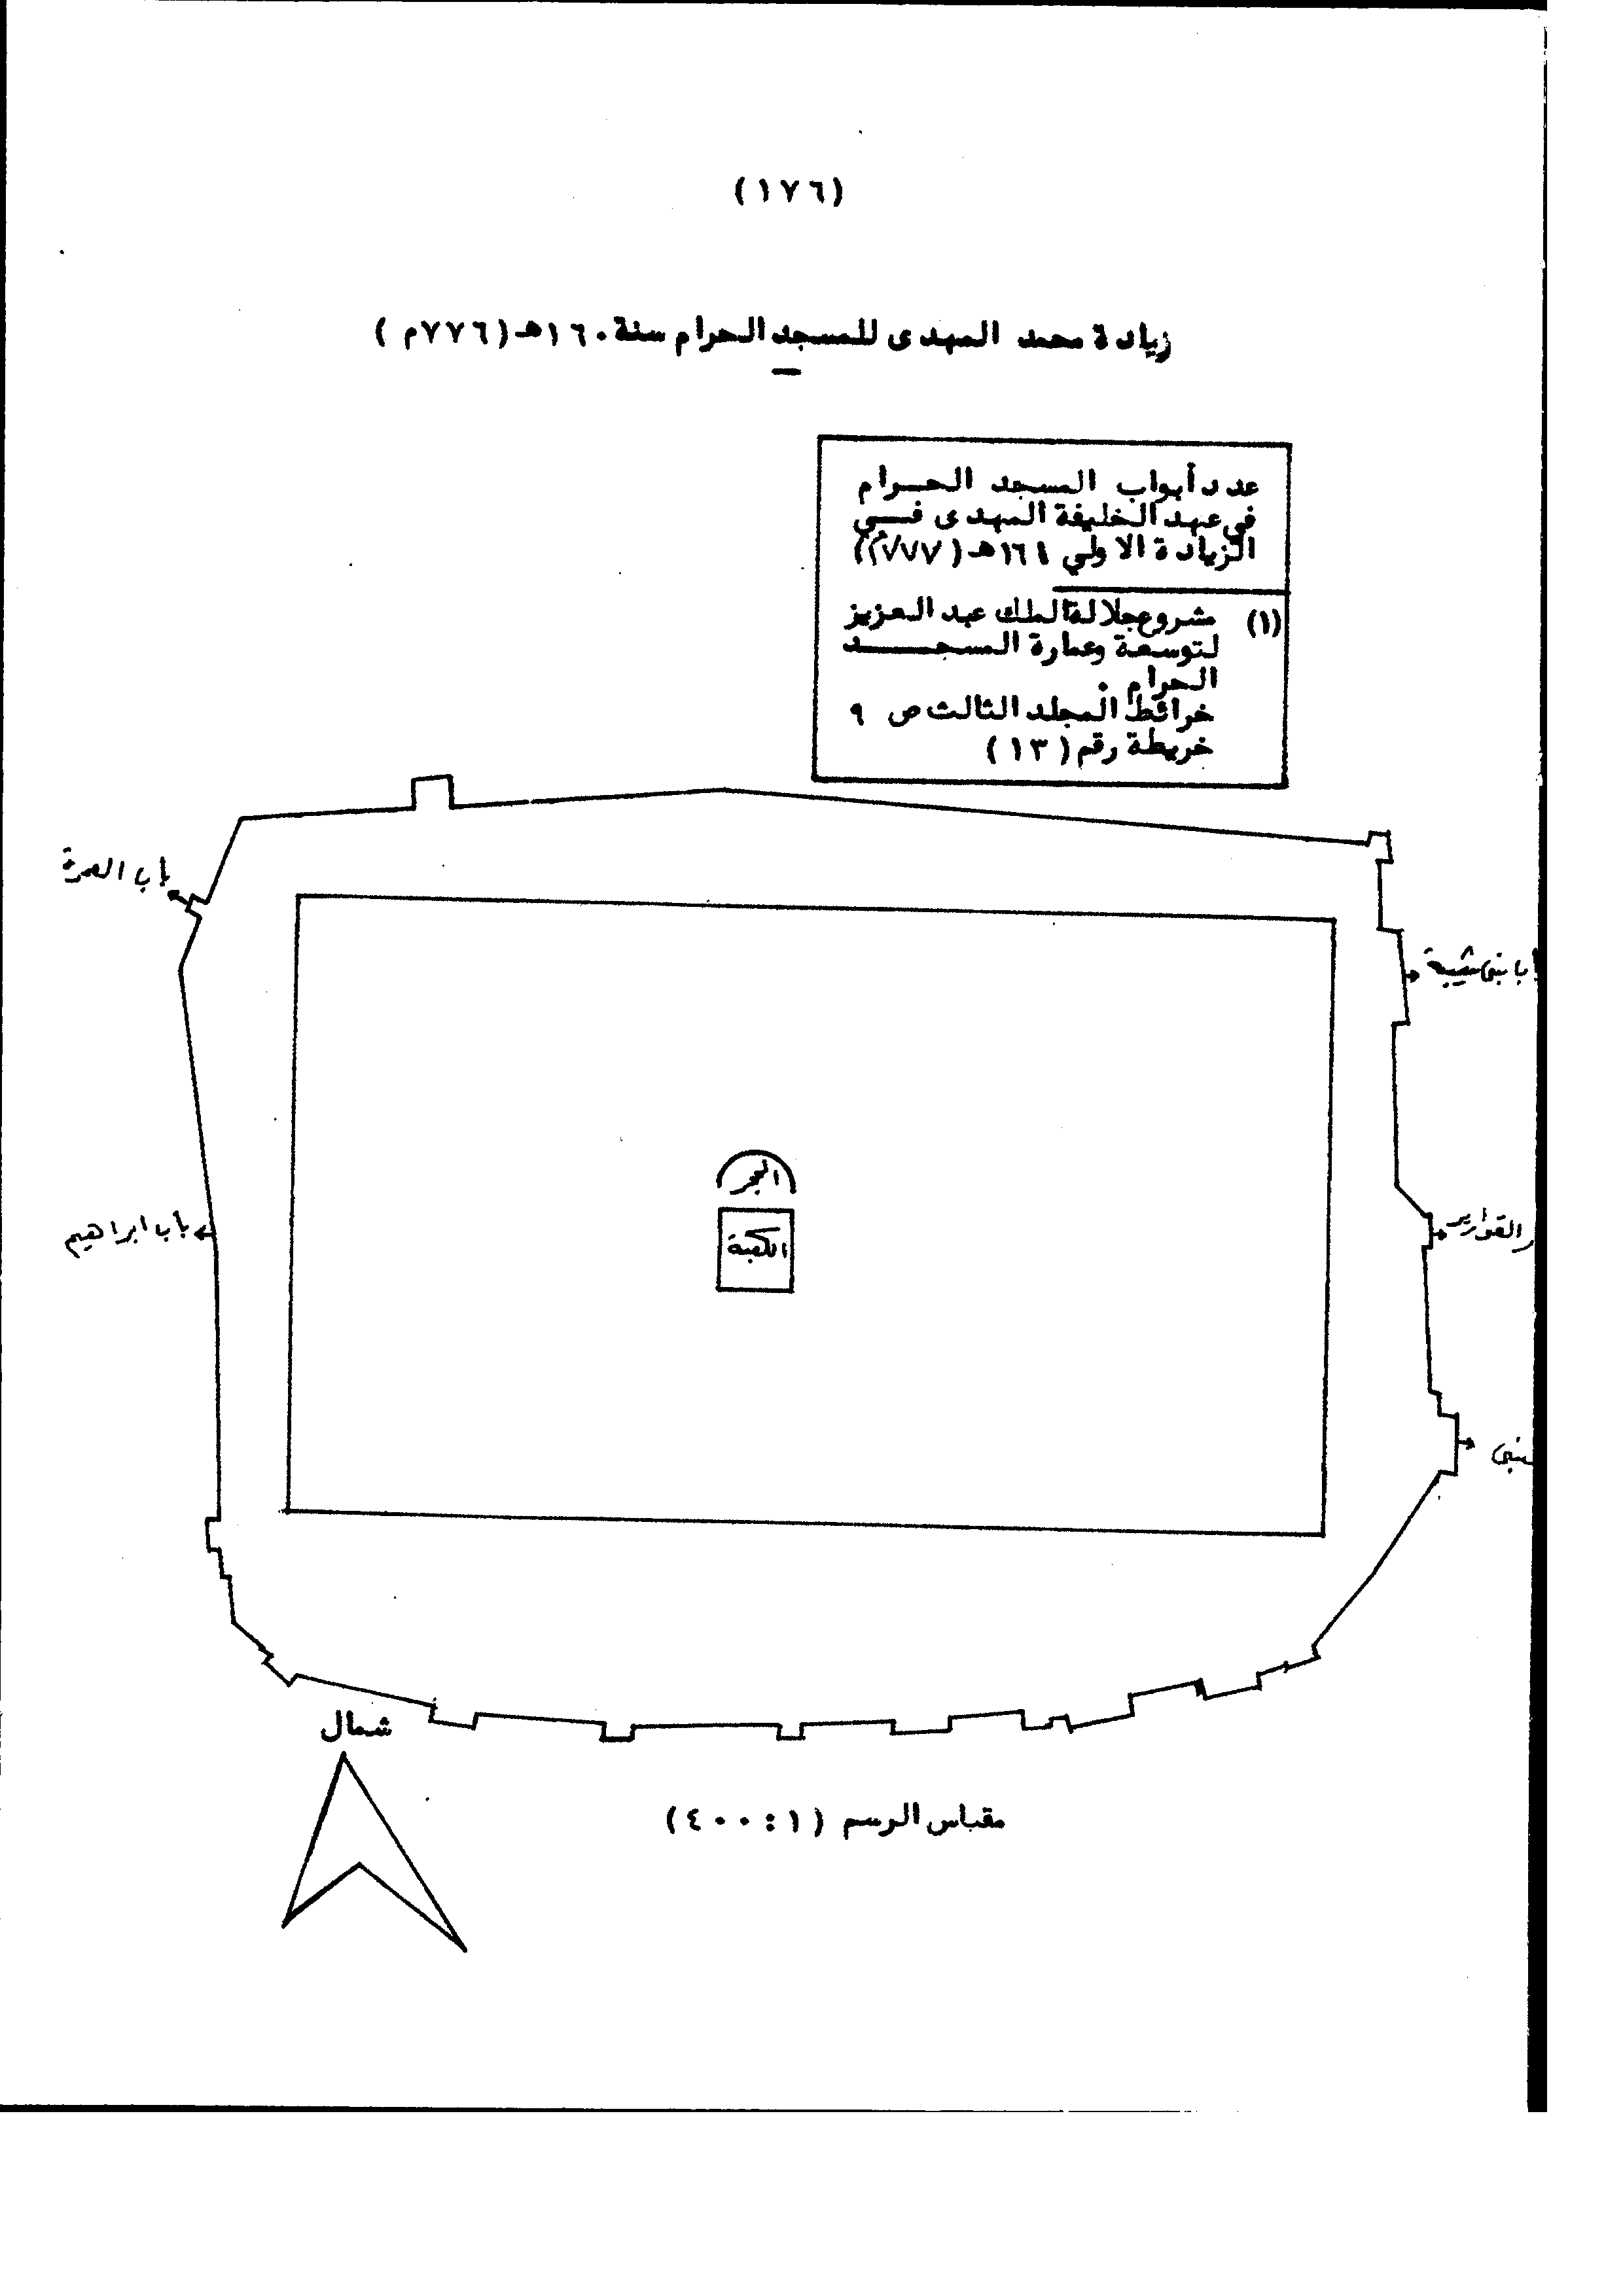 (١٧٦)
زيادة محمد المهدى للمسجد الحرام سنة ١٦٠هـ (٧٧٦م)
عدد أبواب المسجد الحرام
في عهد الخليفة المهدى في
الزيادة الاولي ١٦٤هـ (٧٧٧م)
(١) مشروع جلالة الملك عبد العزيز
لتوسعة وعمارة المسجد
الحرام .
خرائط المجلد الثالث ص ٩
خريطة رقم (١٣)
باب العمرة
باب بنى شيبة
الحجر
الكعبة
باب ابراهيم
القوارير
شمال
مقياس الرسم (١:٤٠٠)